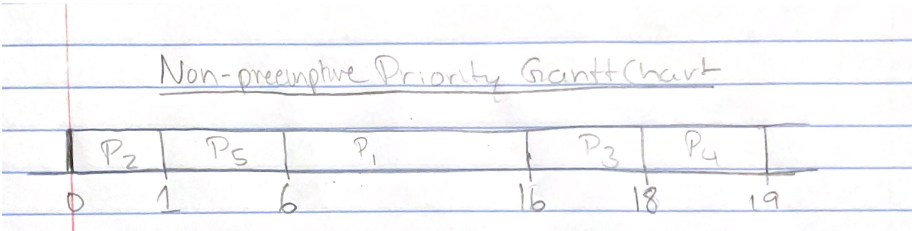 Non-preemptive Priority Gantt Chart
P2 P5 P1 P3 P4
0 1 6 16 18 19